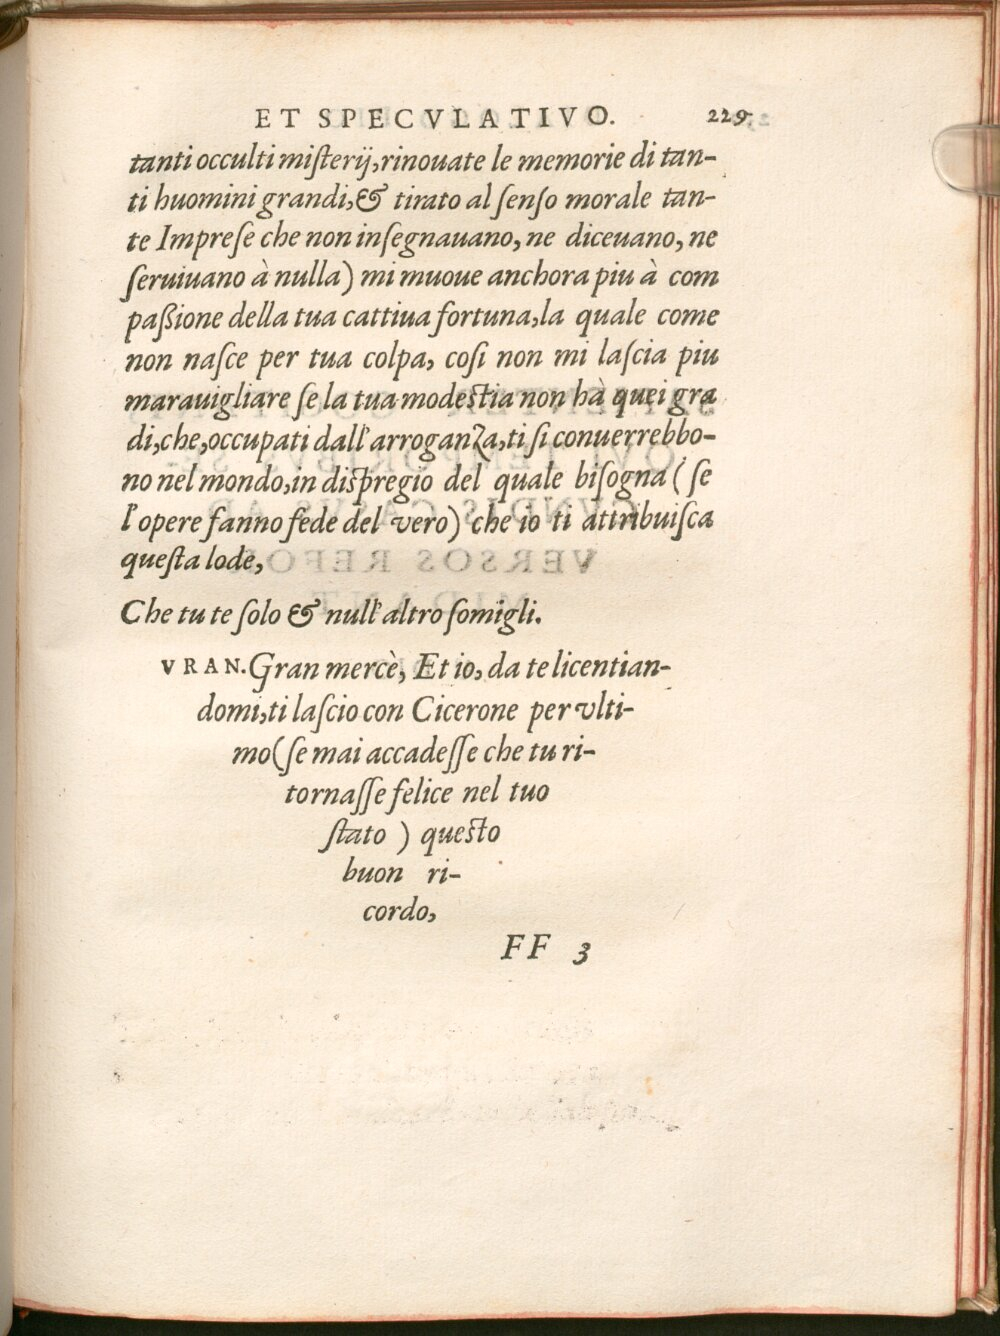 ET SPECVLATIVO. 229
tanti occulti miſterij, rinouate le memorie di tan-
ti huomini grandi, & tirato al ſenſo morale tan-
te Impreſe che non inſegnauano, ne diceuano, ne
ſeruiuano à nulla) mi muoue anchora piu à com
paßione della tua cattiua fortuna, la quale come
non naſce per tua colpa, coſi non mi laſcia piu
marauigliare ſe la tua modeſtia non hà quei gra
di, che, occupati dall'arroganza, ti ſi conuerrebbo-
no nel mondo, in diſpregio del quale biſogna (ſe
l'opere fanno fede del vero) che io ti attribuiſca
queſta lode,
Che tu te ſolo & null'altro ſomigli.
VRAN. Gran mercè, Et io, da te licentian-
domi, ti laſcio con Cicerone per vlti-
mo (ſe mai accadeſſe che tu ri-
tornaſſe felice nel tuo
ſtato ) queſto
buon ri-
cordo,
FF 3